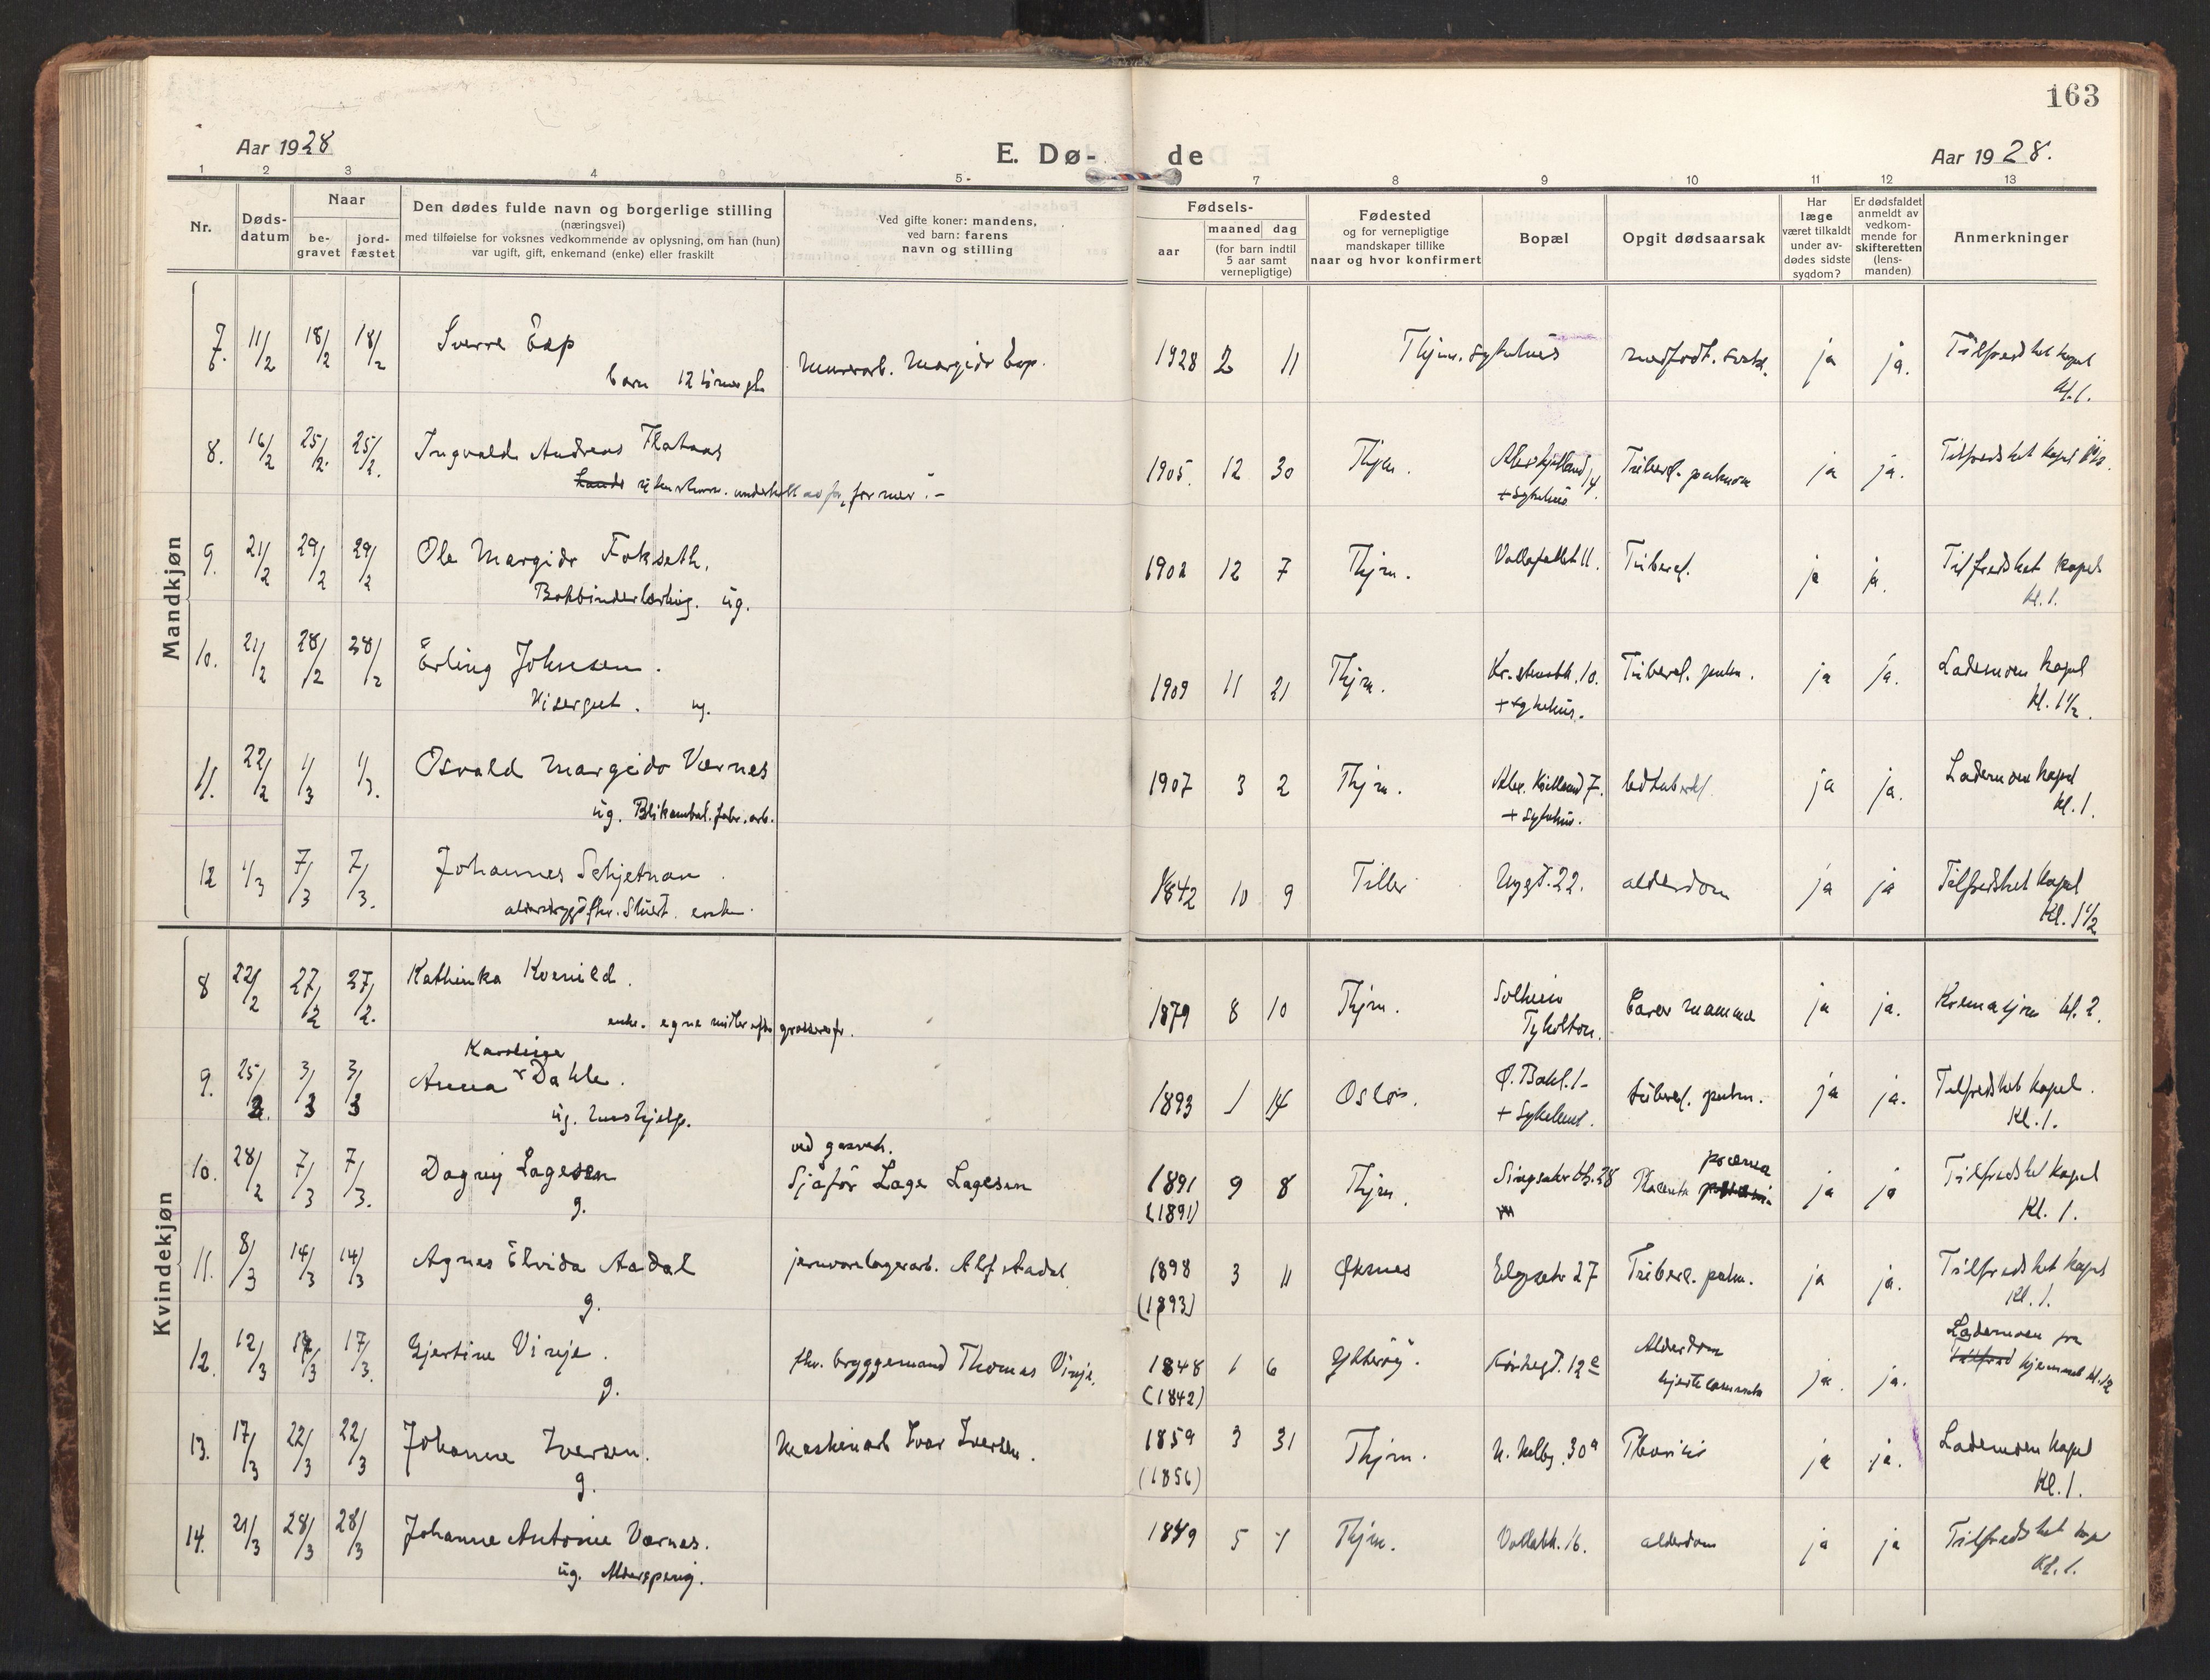 163
Aar 1928
E. Dø-
de
Aar 1928.
1 2 3 4 5 7 8 9 10 11 12 13
Nr.
Døds-
datum
Naar
be-
gravet
jord-
fæstet
Den dødes fulde navn og borgerlige stilling
(næringsvei)
med tilføielse for voksnes vedkommende av oplysning, om han (hun)
var ugift, gift, enkemand (enke) eller fraskilt
Ved gifte koner: mandens,
ved barn: farens
navn og stilling
Fødsels-
aar
maaned dag
(for barn indtil
5 aar samt
vernepligtige)
Fødested
og for vernepligtige
mandskaper tillike
naar og hvor konfirmert
Bopæl
Opgit dødsaarsak
Har
læge
været tilkaldt
under av-
dødes sidste
sygdom?
Er dødsfaldet
anmeldt av
vedkom-
mende for
skifteretten
(lens-
manden)
Anmerkninger
Mandkjøn
7. 11/2 18/2 18/2 Sverre Eap Murerarb. Margido Eap. 1928 2 11 Thjm. sykehus medfødt. svak. ja ja. Tilfredshet kapel
barn 12 timer gl. kl. 1.
8. 16/2 25/2 25/2 Ingvald Andreas Flataas 1905. 12 30 Thjm. Alex kjelland 14 Tuberc. pulmon ja ja. Tilfredshet kapel
+ sykehus
9. 21/2 29/2 29/2 Ole Margido Fokseth. 1902 12 7 Thjm. Vollafallet 11. Tuberc. ja ja. Tilfredshet kapel
Bokbinderlærling. ug. kl. 1.
10. 21/2 28/2 28/2 Erling Johnsen. 1909 11 21 Thjm. 10. Tuberc. pulm. ja ja. Lademoen kapel
Visergut. ug. + sykehus. Kl. 1 1/2.
11. 22/2 1/3 1/3. Osvald Margido Værnes 1907 3 2 Thjm. Alex. Kielland 7. ja ja. Lademoen kapel
ug. Blikembal. fabr. arb. + sykehus. Kl. 1.
12 1/3 7/3 7/3. Johannes Schjetnan 1842 10 9 Tiller 22. alderdom ja ja Tilfredshet kapel
Kl. 1 1/2
Kvindekjøn
8 22/2 27/2 27/2. Kathinka Kvenild. 1879 8 10 Thjm. Solheim Cancer mamma ja ja. Krematjon kl. 2.
enke. egne midler efter grosserer fr. Tyholtvn.
Karoline
9. 25/2. 3/3 3/3 Anna Dahle. 1893 1 14 Oslo. Ø. Bakl. 1 tuberc. pulm. ja ja. Tilfredshet kapel.
ug. hushjelp. + Sykehus. Kl. 1.
ved gasverk.
10. 28/2 7/3 7/3. Dagny Lagesen Sjåfør Lage Lagesen 1891 9 8 Thjm. 28 Placenta prævia ja ja Tilfredshet kapel
g. (1891) Kl. 1.
11. 8/3 14/3 14/3 Agnes Elvida Aadal jernvarelagerarb. Alf Aadal. 1898 3 11 Øksnes Elgesetr 27 Tuberc. pulm. ja ja. Tilfredshet kapel
g. (1893) Kl. 1.
12. 12/3 17/3 17/3. Gjertine Vinje. fhv. bryggemand Thomas Vinje. 1848 1 6 Ytterøy. Kirkegt. 12 Alderdom ja. ja. Lademoen fra
g. (1842) hjemmet kl. 12
13. 17/3 22/3 22/3 Johanne Iversen. Maskinarb Ivar Iversen. 1859 3 31 Thjm. 30a ja ja. Lademoen kapel
g. (1856) Kl. 1.
14. 21/3 28/3 28/3 Johanne Antonie Værnes. 1849 5 4 Thjm. Vollabk. 16. alderdom ja ja Tilfredshet kap
ug. Alderspensj. Kl. 1.